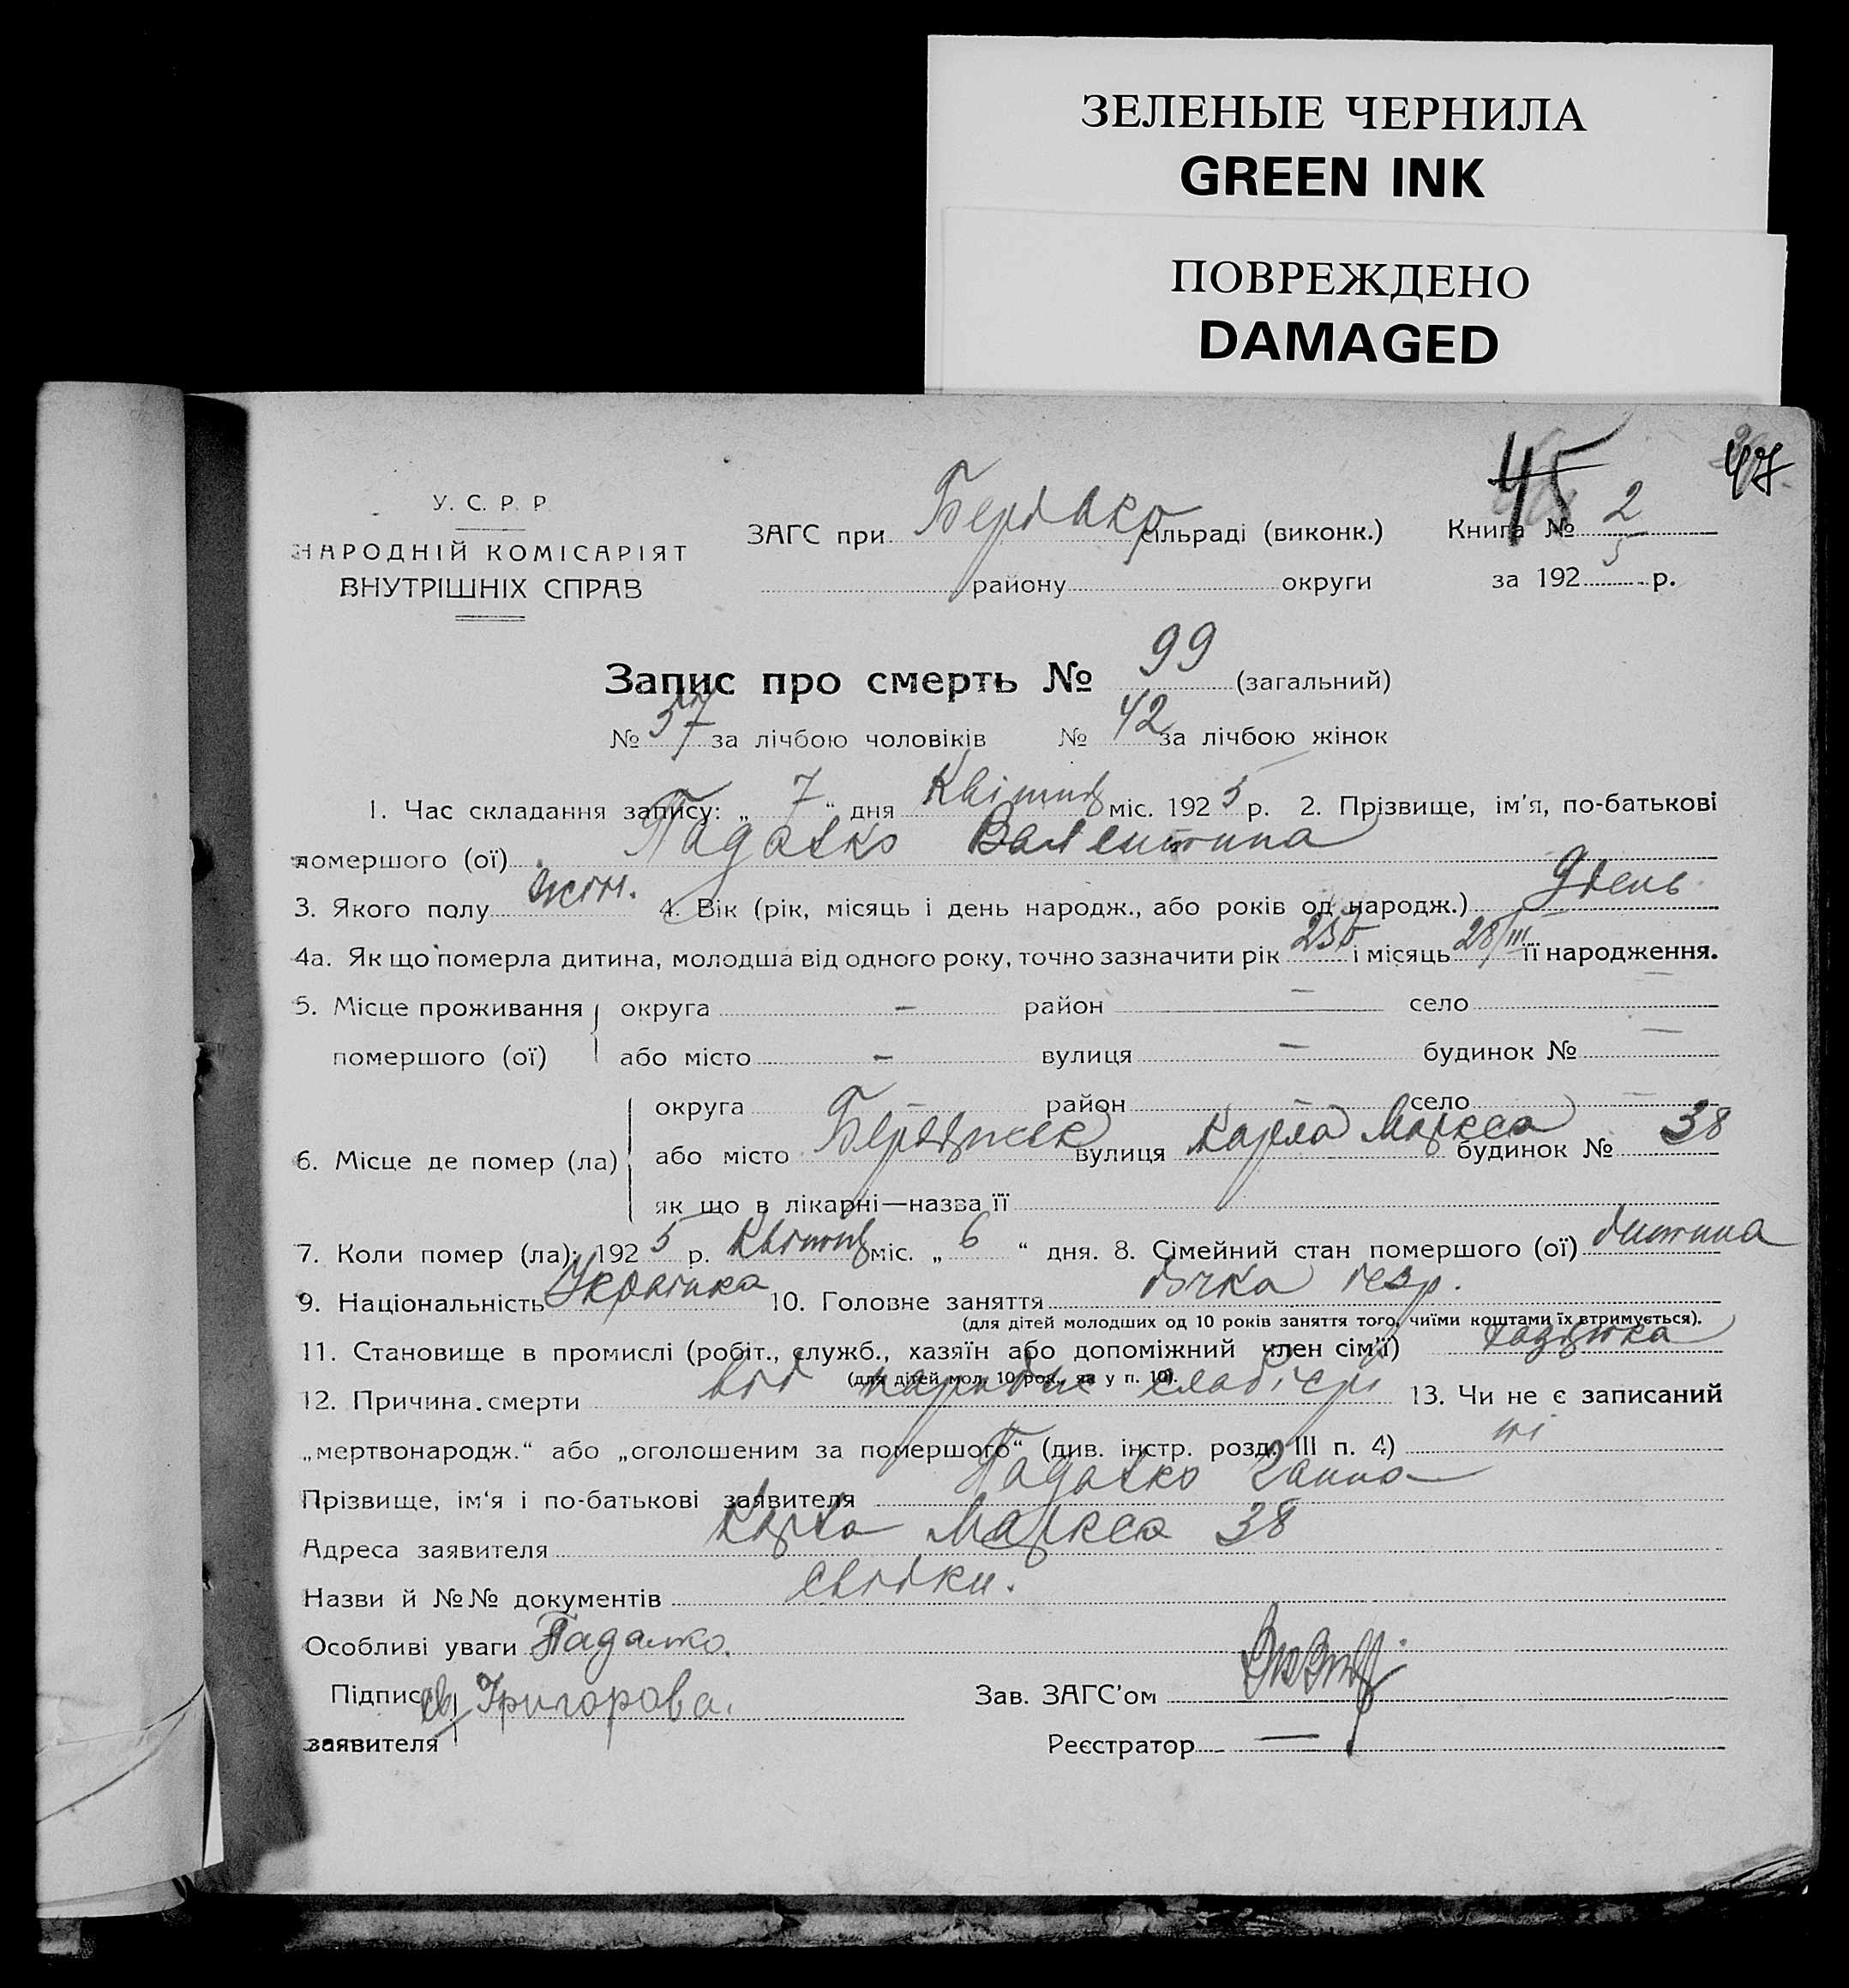 ЗЕЛЕНЫЕ ЧЕРНИЛА
GREEN INK
ПОВРЕЖДЕНО
DAMAGED
45 47
У. С. Р. Р.
НАРОДНІЙ КОМІСАРІЯТ
ВНУТРІШНІХ СПРАВ
ЗАГС при сільраді (виконк.) Книга № 2
району округи за 192 5 р.
Запис про смерть № 99 (загальний)
№ 57 за лічбою чоловіків № 42 за лічбою жінок
1. Час складання запису: „ 7 “ дня Квітня міс. 192 5 р. 2. Прізвище, ім'я, по-батькові
помершого (ої) Падалко Валентина
3. Якого полу жін. 4. Вік (рік, місяць і день народж., або років од народж.) 9 день
4а. Як що померла дитина, молодша від одного року, точно зазначити рік і місяць 28/III її народження.
5. Місце проживання округа – район – село –
помершого (ої) або місто – вулиця – будинок № –
округа – район – село –
6. Місце де помер (ла) або місто вулиця Карла Маркса будинок № 38
як що в лікарні—назва її
7. Коли помер (ла): 192 5 р. Квітня міс. „ 6 “ дня. 8. Сімейний стан помершого (ої) дитина
9. Національність Українка 10. Головне заняття
(для дітей молодших од 10 років заняття того, чиїми коштами їх втримується).
11. Становище в промислі (робіт., служб., хазяїн або допоміжний член сім'ї)
(для дітей мол. 10 рок., як у п. 10).
12. Причина смерти від 13. Чи не є записаний
„мертвонародж.“ або „оголошеним за помершого“ (див. інстр. розд. III п. 4) ні
Прізвище, ім'я і по-батькові заявителя Падалко Ганна
Адреса заявителя Карла Маркса 38
Назви й №№ документів свідки.
Особливі уваги Падалко.
Підпис св. Григорова. Зав. ЗАГС'ом
заявителя Реєстратор —